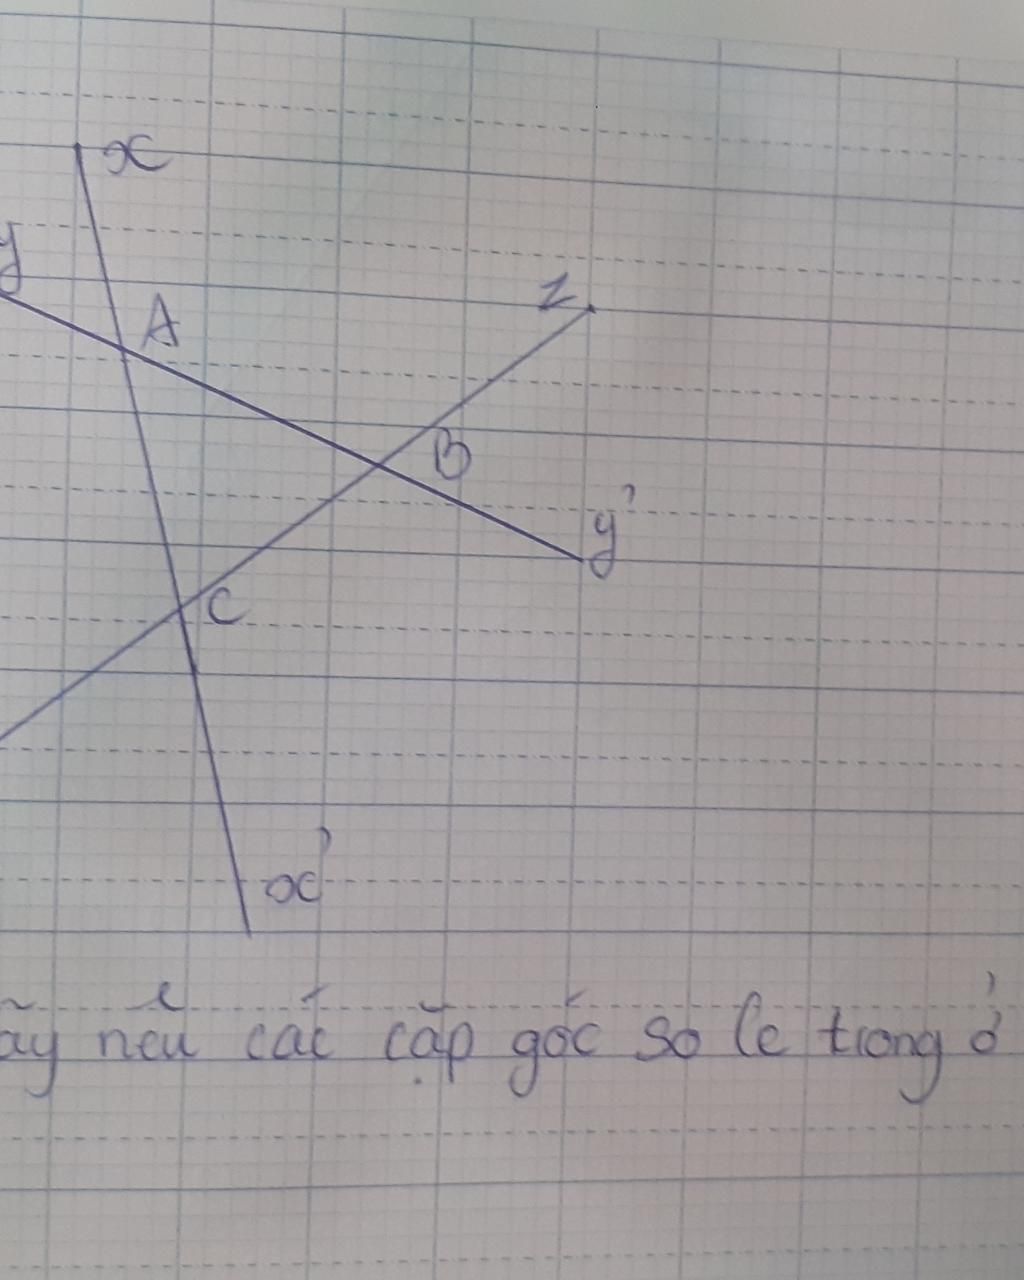 x
y
A
z
B
y'
C
x'
ãy nêu các cặp góc so le trong ở